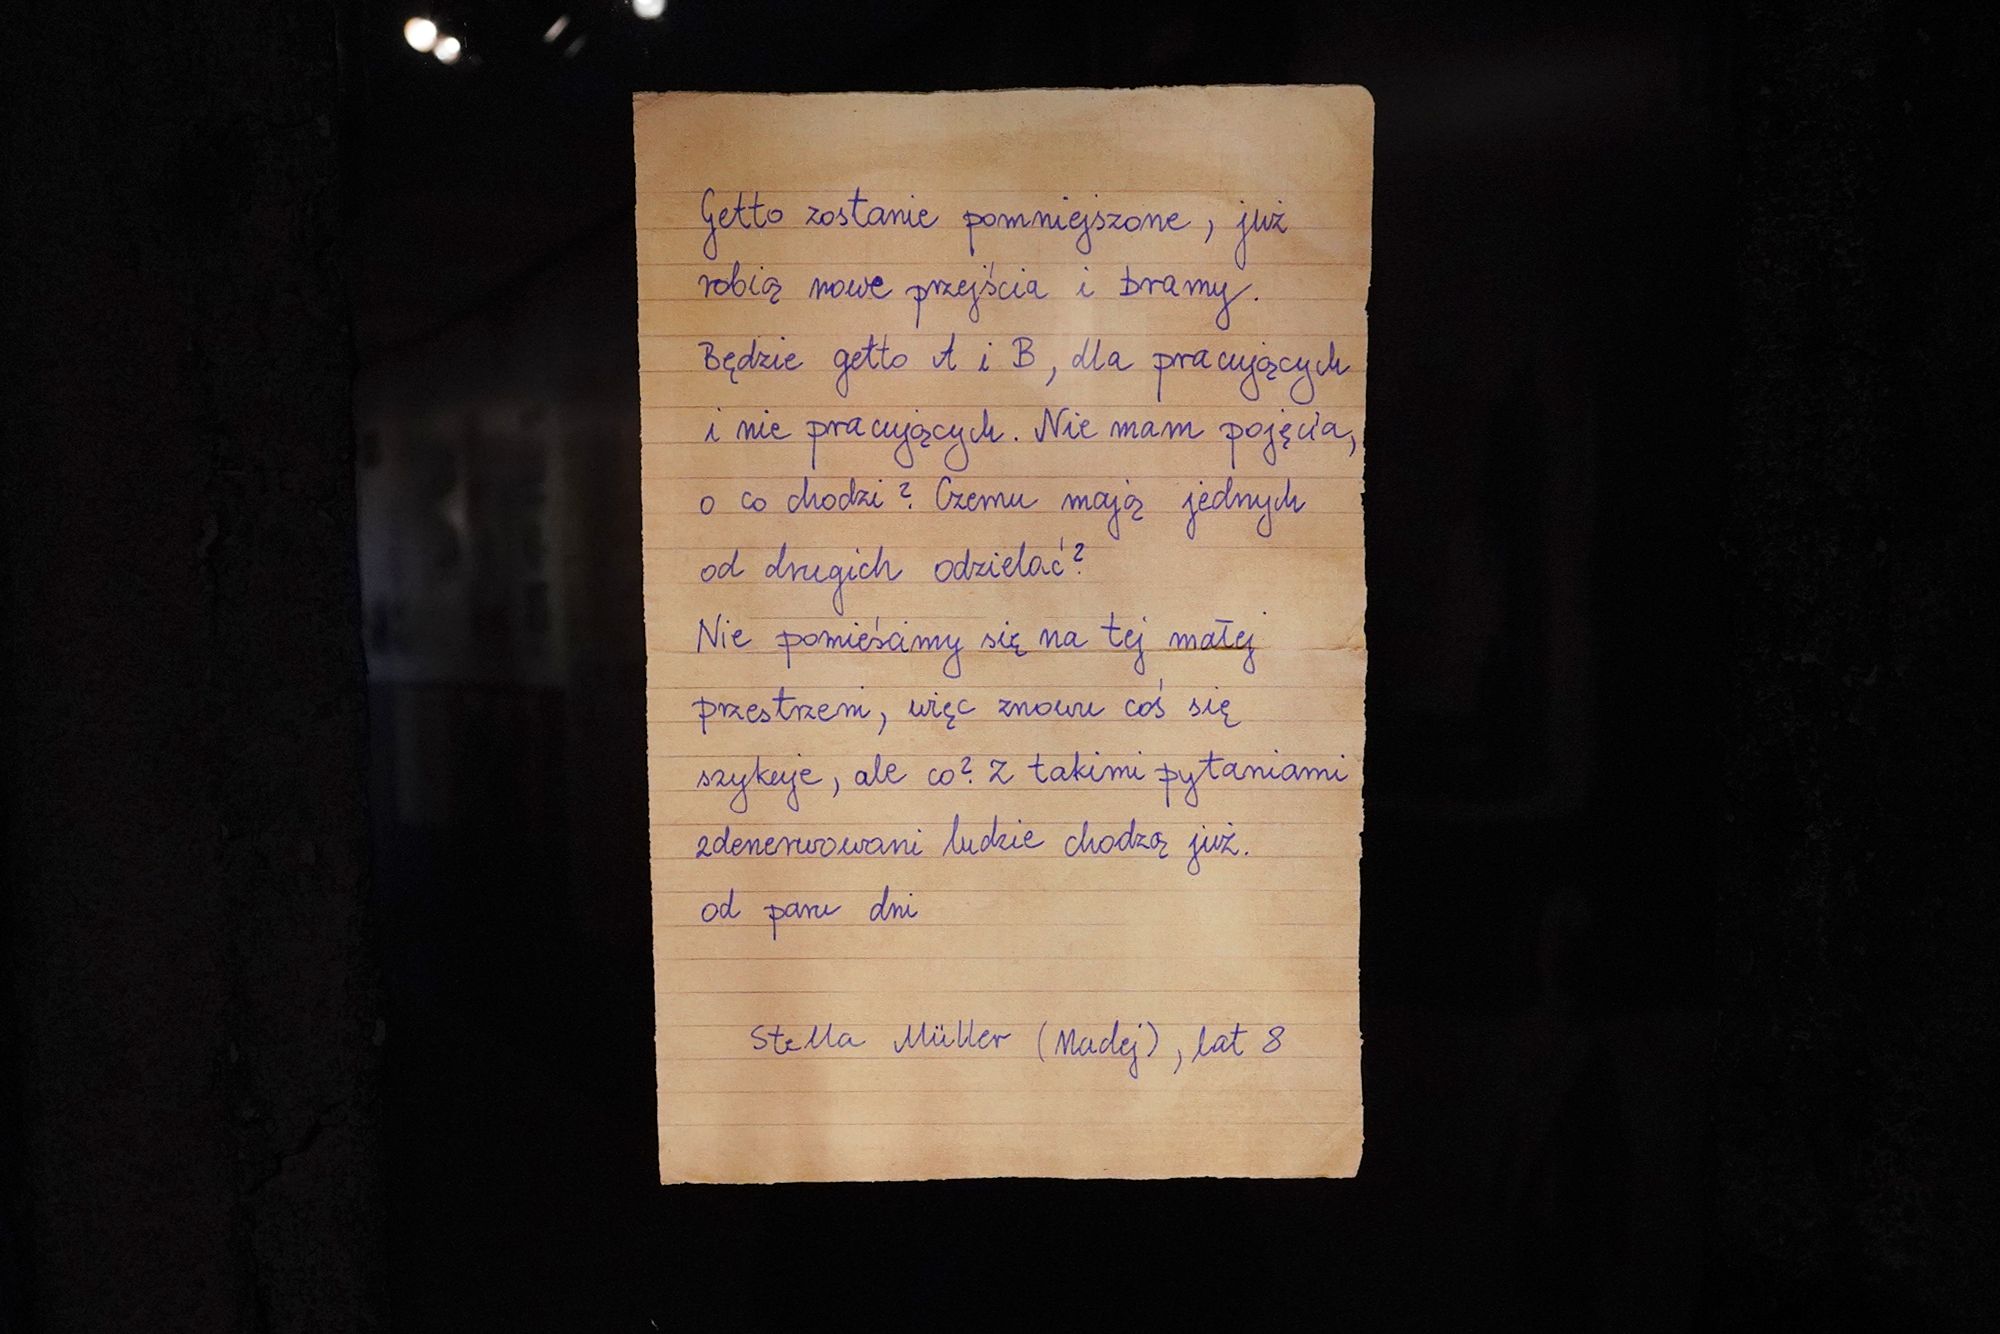 Getto zostanie pomniejszone, już
robią nowe przejścia i bramy.
Będzie getto A i B, dla pracujących
i nie pracujących. Nie mam pojęcia,
o co chodzi? Czemu mają jednych
od drugich odzielać?
Nie pomieścimy się na tej małej
przestrzeni, więc znowu coś się
szykuje, ale co? Z takimi pytaniami
zdenerwowani ludzie chodzą już.
od paru dni
Stella Müller (Madej), lat 8